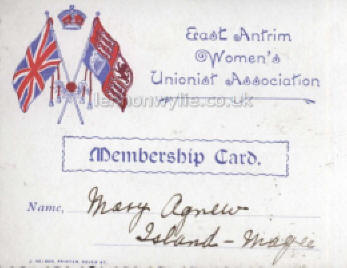 East Antrim
Women's
Unionist Association
lennonwylie.co.uk
Membership Card.
Name, Mary Agnew
Island-Magee